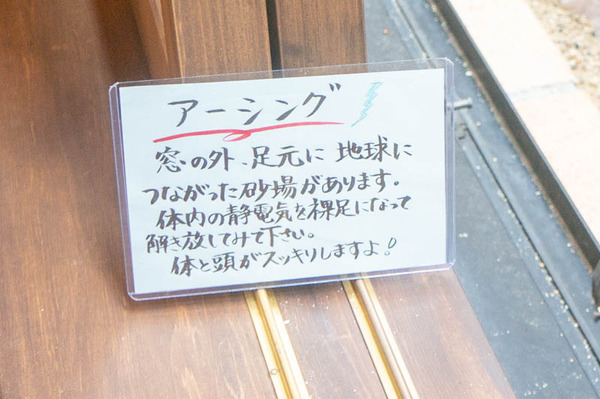 アーシング
窓の外、足元に 地球に
つながった砂場があります。
体内の静電気を裸足になって
解き放してみて下さい。
体と頭がスッキリしますよ！